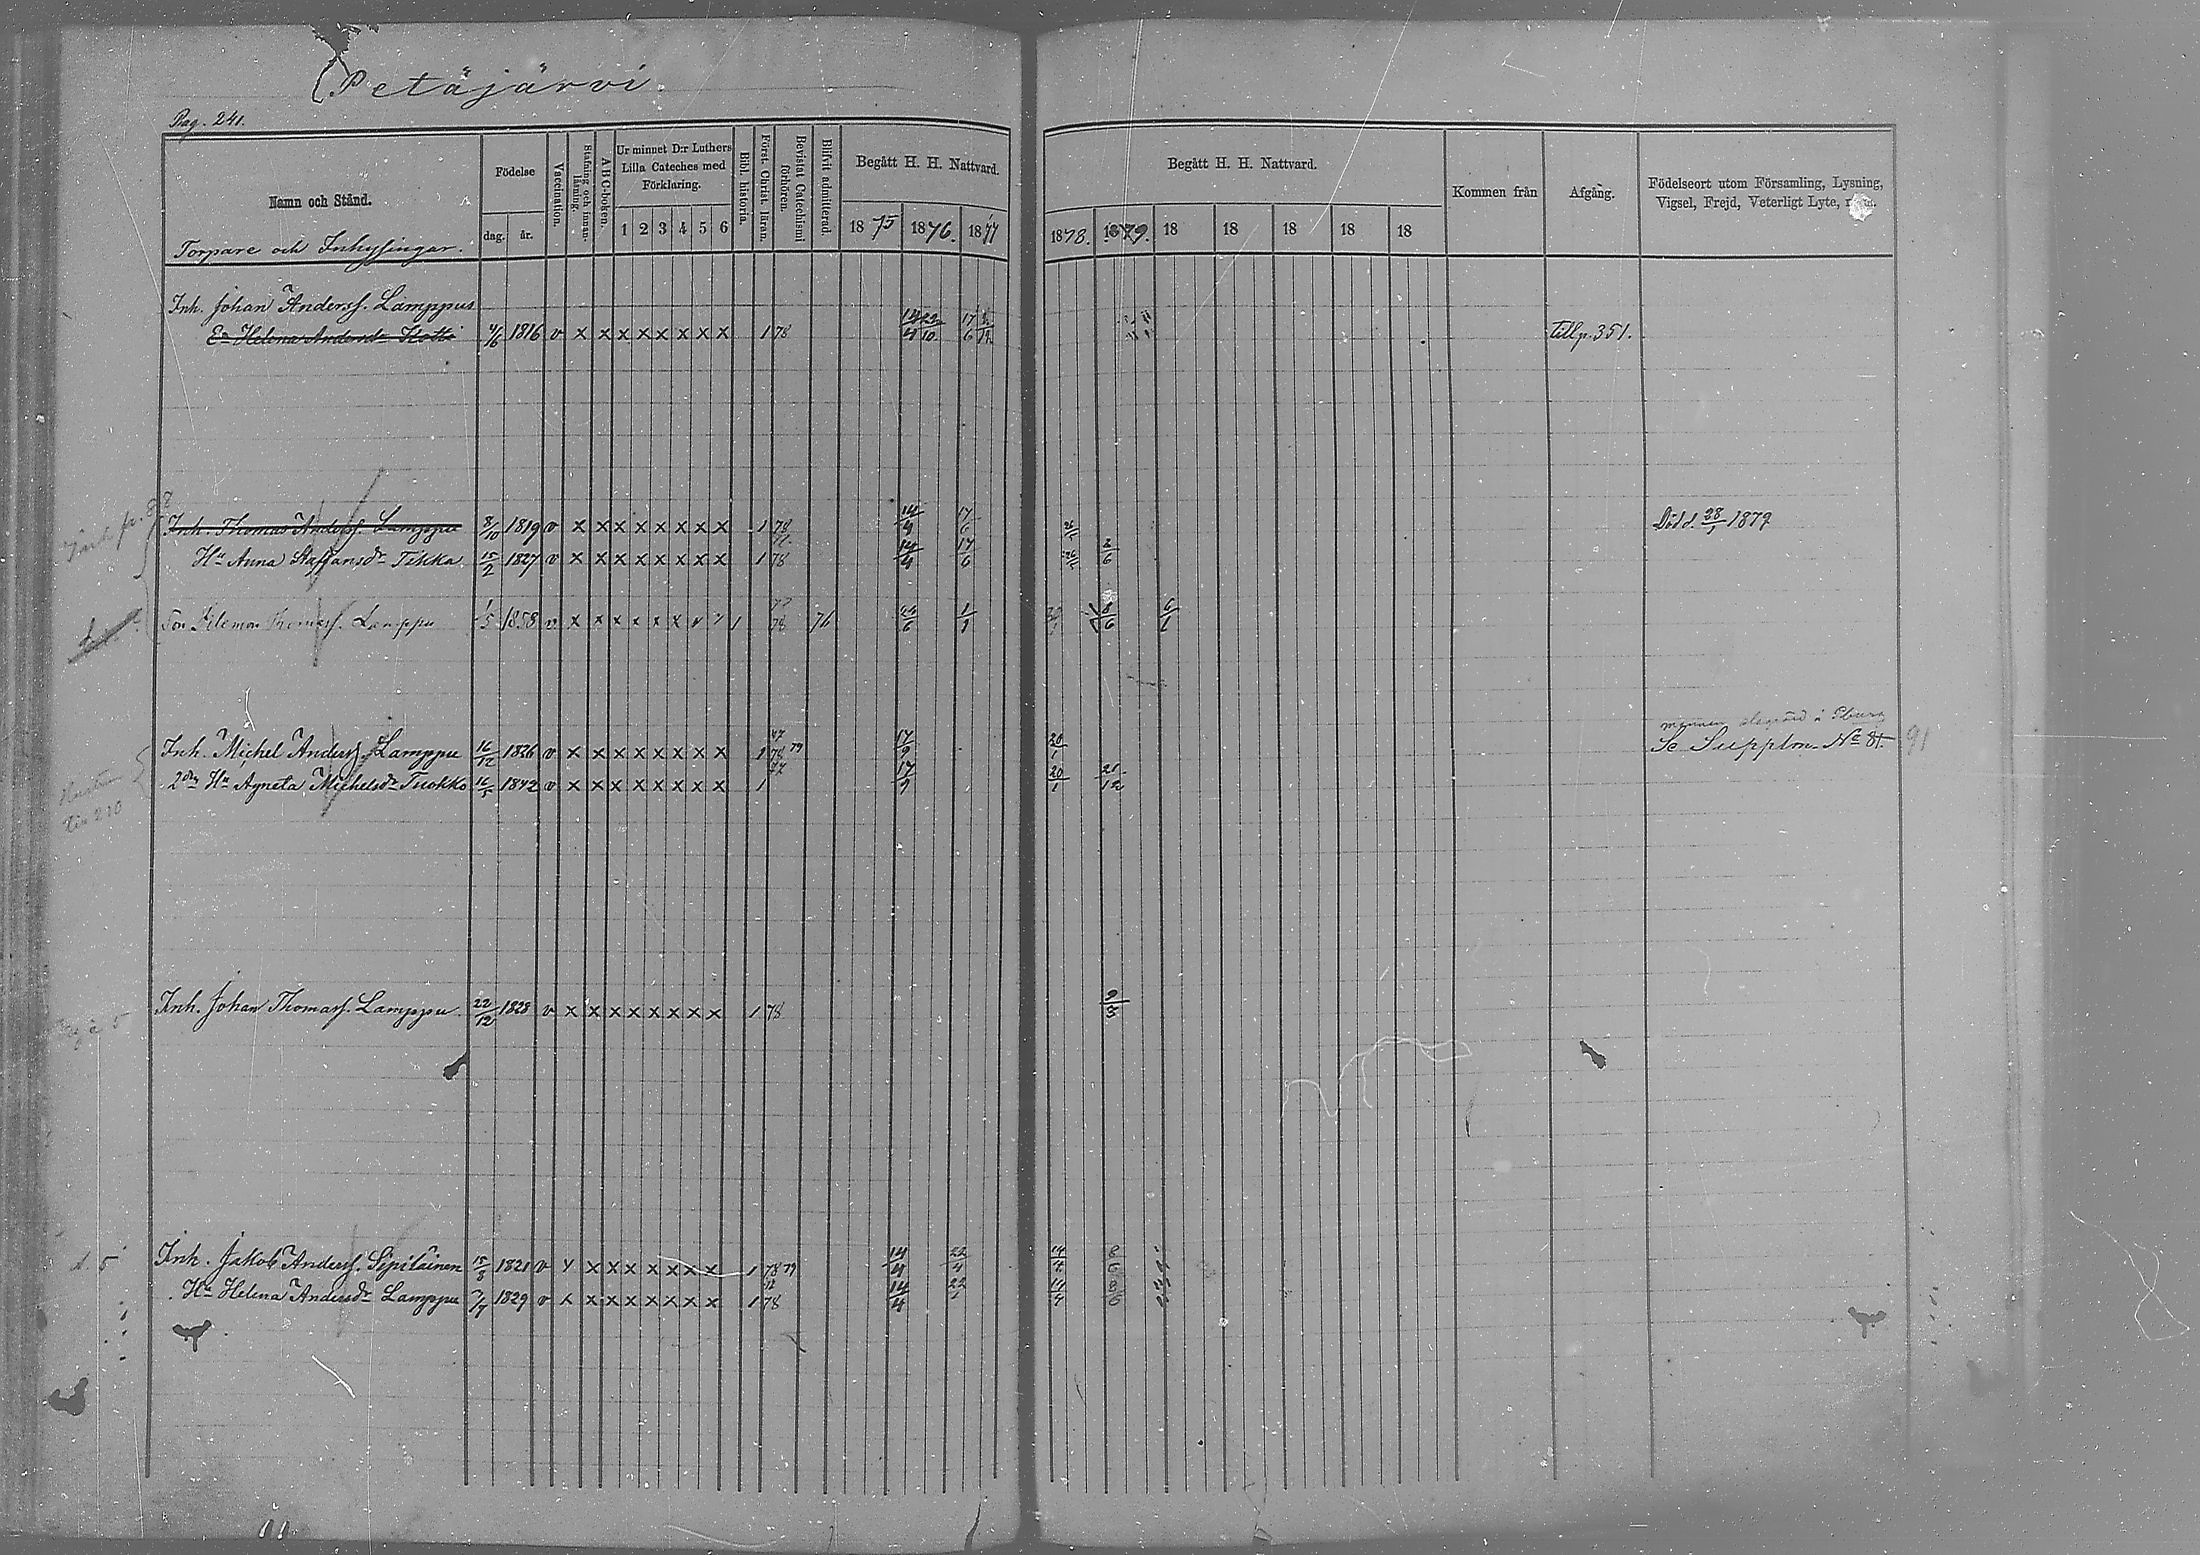 Petäjärvi.
Pag. 241.
Namn och Stånd.
Torpare och Inhysingar.
Födelse
dag. år.
Vaccination.
Stafning och innanläsning.
ABC-boken.
Ur minnet D:r Luthers Lilla Cateches med Förklaring.
1 2 3 4 5 6
Bibl. historia.
Först. Christ. läran.
Bevistat Catechismi förhören.
Blifvit admitterad.
Begått H. H. Nattvard.
1875 1876. 1877
Begått H. H. Nattvard.
1878. 1879. 18 18 18 18 18
Kommen från
Afgång.
Födelseort utom Församling, Lysning, Vigsel, Frejd, Veterligt Lyte,
Inh. Johan Anderss. Lamppus
Ea Helena Andersdr Kotti 4/6 1816 v x x x x x x x x 1 78 14/4 22/10 17/6 till p. 351.
Inh. Thomas Anderss. Lamppu 8/10 1819 v x x x x x x x x 1 78 14/4 17/6 Död d. 28/1 1879
Hu Anna Staffansdr Tikka 15/2 1827 v x x x x x x x x 1 78 14/4 17/6 3/6
Son Filemon Thomass. Lamppu 1/5 1858 v x x x x x x 1 78 76 8/6 6/1
Inh. Michel Anderss. Lamppu 16/12 1826 v x x x x x x x x 1 78 79 17/9 20/1 Se Supplem. No 81. 91
2dra Hu Agneta Michelsdr Tuokko 16/5 1842 v x x x x x x x x 1 17/9 20/1 21/12
Inh. Johan Thomass. Lamppu 22/12 1828 v x x x x x x x x 1 78 9/3
Inh. Jakob Anderss. Sipiläinen 15/8 1821 v x x x x x x x x 1 78 79 14/4 22/4 14/4 8/6
Hu Helena Andersdr Lamppu 1829 v x x x x x x x x 1 78 14/4 14/4 8/6